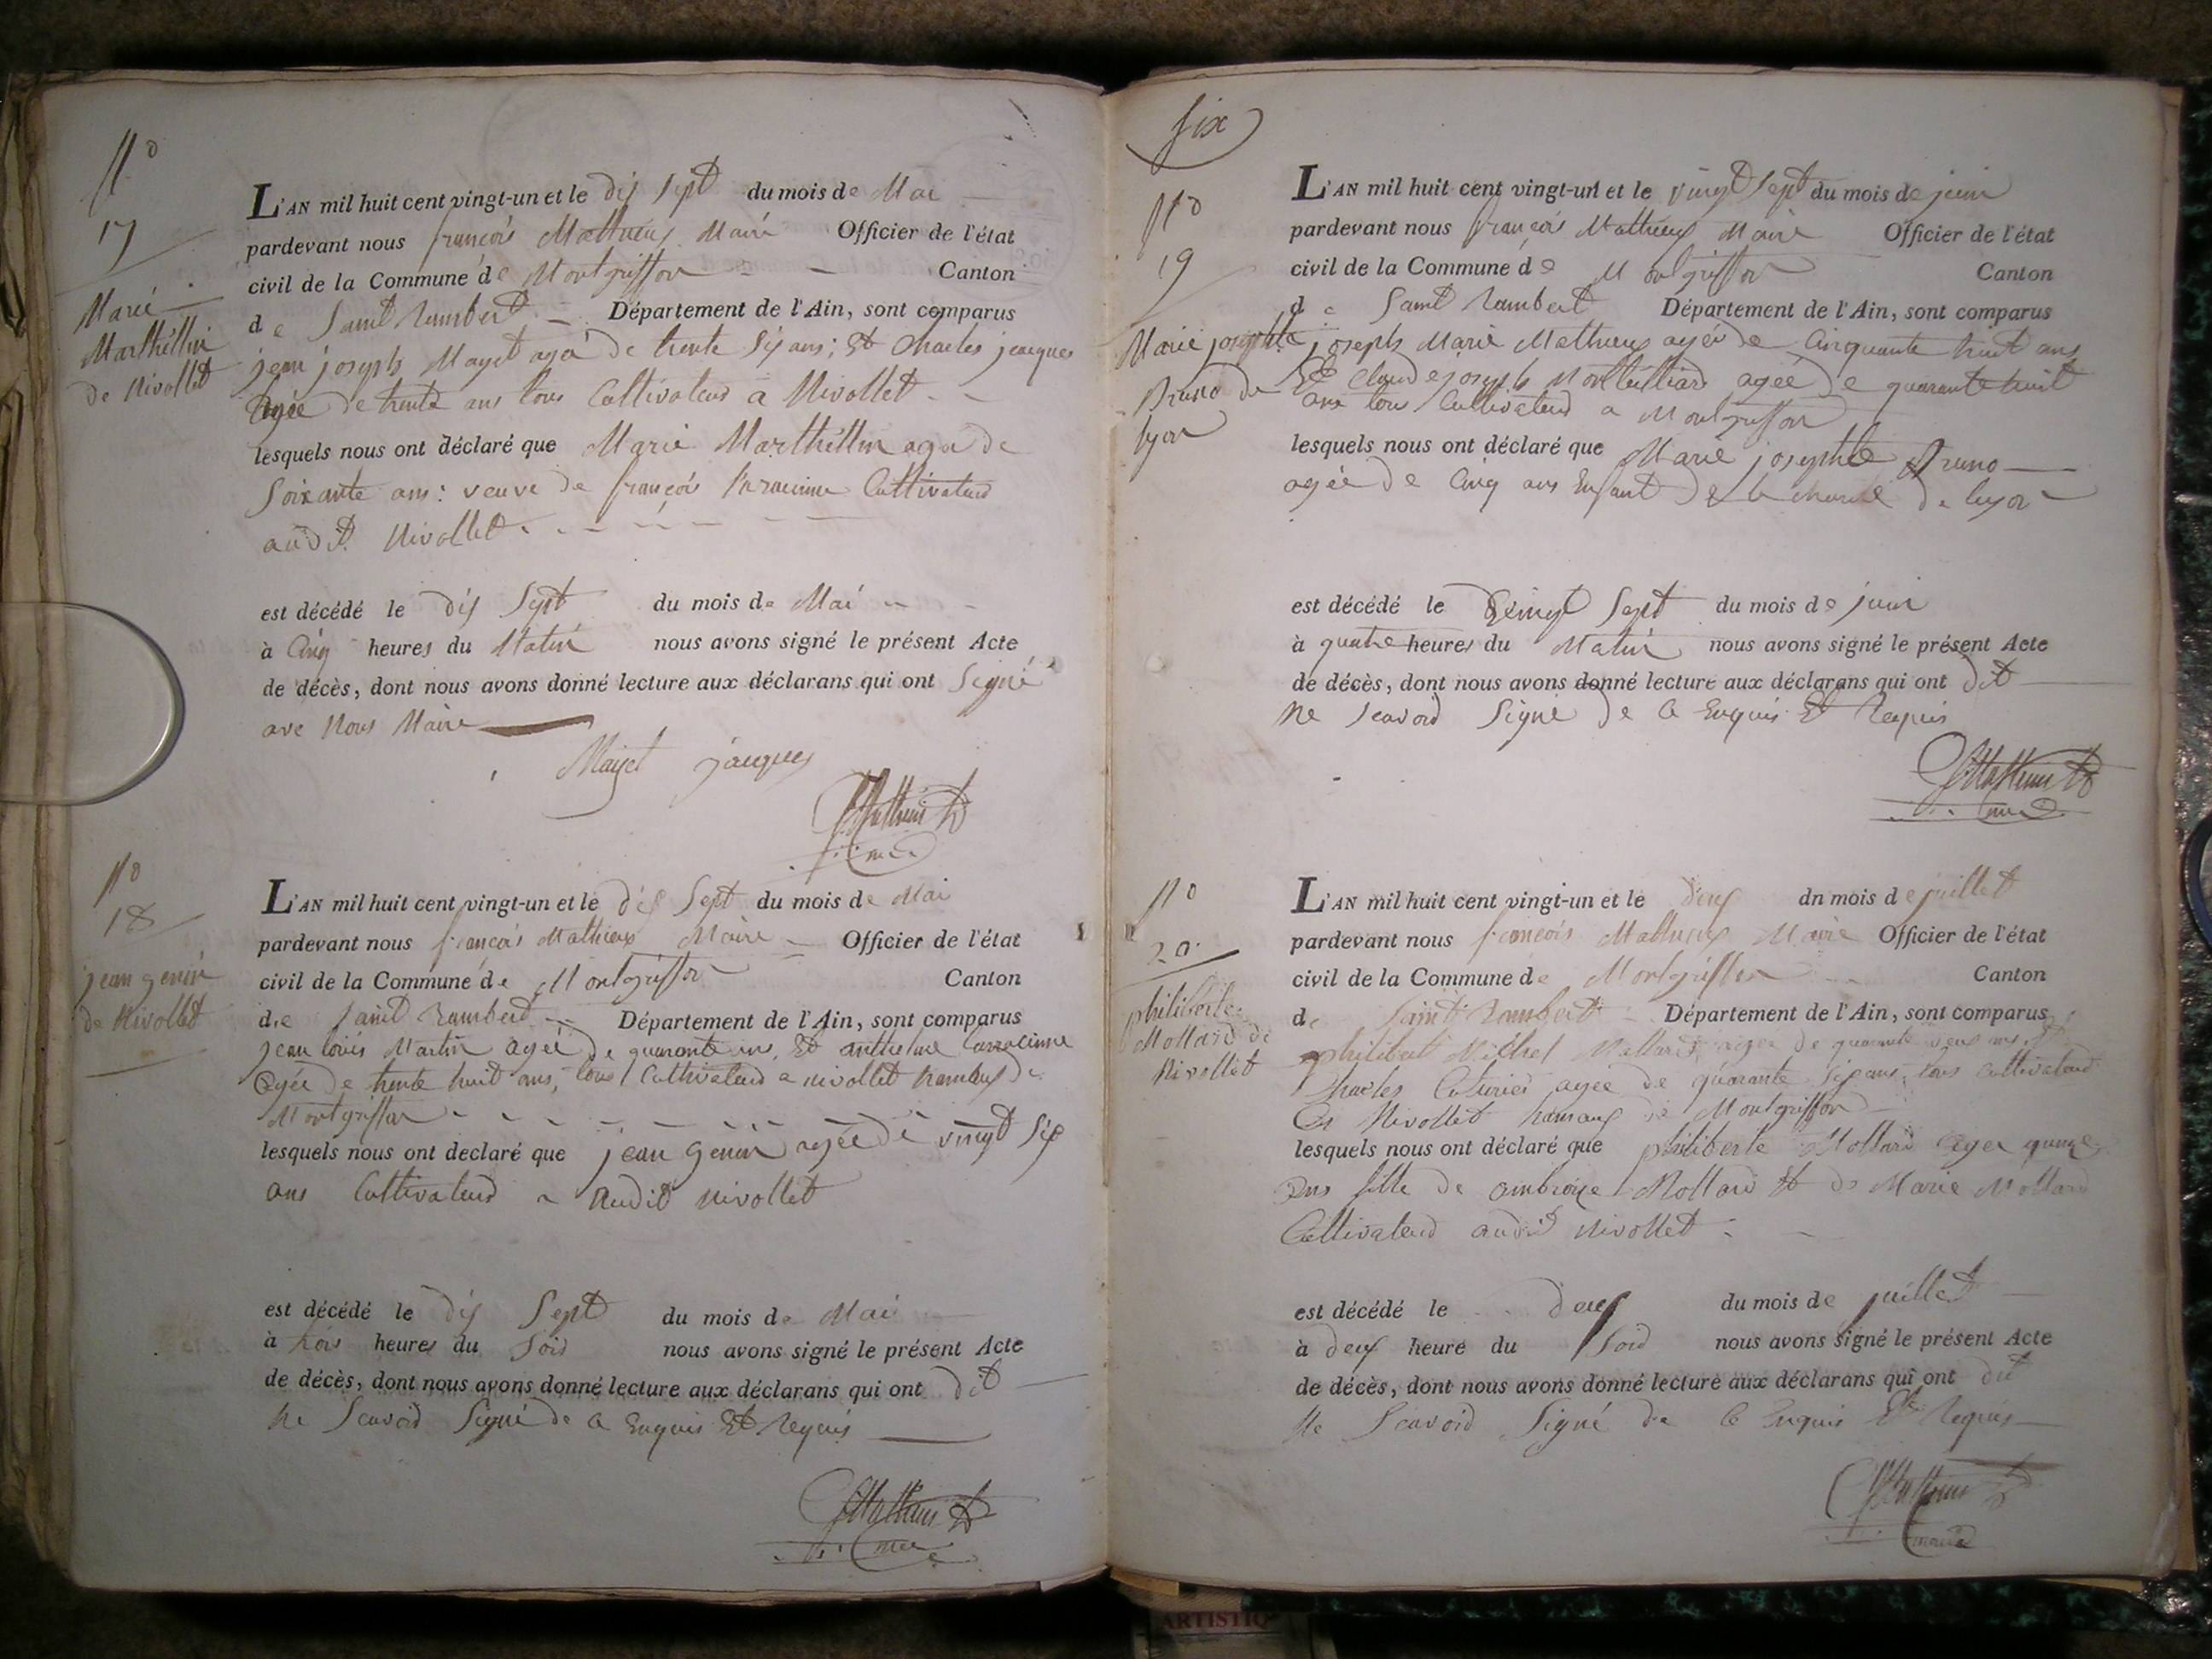 N°
17
Marie
Marthéllin
de Nivollet
L'AN mil huit cent vingt-un et le dix sept du mois de Mai
pardevant nous françois Mathieux Maire Officier de l'état
civil de la Commune de Montgriffon Canton
de Saint Rambert Département de l'Ain, sont comparus
jean joseph Mayet agée de trente six ans; Et Charles jacques
agée de trente ans tous Cultivateurs a Nivollet
lesquels nous ont déclaré que Marie Marthéllin agée de
soixante ans: veuve de françois Cultivateur
audit Nivollet
est décédé le dix sept du mois de Mai
à Cinq heures du Matin nous avons signé le présent Acte
de décès, dont nous avons donné lecture aux déclarans qui ont Signé
avec Nous Maire
Mayet jacques
f. Mathieux
N°
18
jean genin
de Nivollet
L'AN mil huit cent vingt-un et le dix sept du mois de Mai
pardevant nous françois Mathieux Maire Officier de l'état
civil de la Commune de Montgriffon Canton
de Saint Rambert Département de l'Ain, sont comparus
jean louis Martin agée de quarante ans, Et anthelme
agée de trente huit ans, tous Cultivateurs a nivollet hameux de
Montgriffon
lesquels nous ont declaré que jean genin agée de vingt six
ans Cultivateur a Audit nivollet
est décédé le dix sept du mois de Mai
à trois heures du Soir nous avons signé le présent Acte
de décès, dont nous avons donné lecture aux déclarans qui ont dit
Ne Scavoir Signé de Ce Enquis Et Requis
f. Mathieux
six
N°
19
Marie josephte
Bruno de
lyon
L'AN mil huit cent vingt-un et le vingt sept du mois de juin
pardevant nous françois Mathieux Maire Officier de l'état
civil de la Commune de Montgriffon Canton
de Saint Rambert Département de l'Ain, sont comparus
joseph Marie Mathieux agée de Cinquante huit ans
Et Claude joseph agée de quarante huit
ans tous Cultivateurs a Montgriffon
lesquels nous ont déclaré que Marie josephte Bruno
agée de Cinq ans Enfant de la de lyon
est décédé le Vingt Sept du mois de juin
à quatre heures du Matin nous avons signé le présent Acte
de décès, dont nous avons donné lecture aux déclarans qui ont dit
Ne Scavoir Signé de Ce Enquis Et Requis
f. Mathieux
N°
20
philiberte
Mollard de
Nivollet
L'AN mil huit cent vingt-un et le deux dn mois de juillet
pardevant nous françois Mathieux Maire Officier de l'état
civil de la Commune de Montgriffon Canton
de Saint Rambert Département de l'Ain, sont comparus
philibert Michel Mollard agée de quarante deux ans Et
Charles Couturier agée de quarante six ans, tous Cultivateurs
a Nivollet hameaux de Montgriffon
lesquels nous ont déclaré que philiberte Mollard agée quinze
ans fille de ambroise Mollard Et de Marie Mollard
Cultivateurs audit Nivollet
est décédé le deux du mois de juillet
à deux heure du Soir nous avons signé le présent Acte
de décès, dont nous avons donné lecture aux déclarans qui ont dit
Ne Scavoir Signé de Ce Enquis Et Requis
f. Mathieux
maire
ARTISTIQ